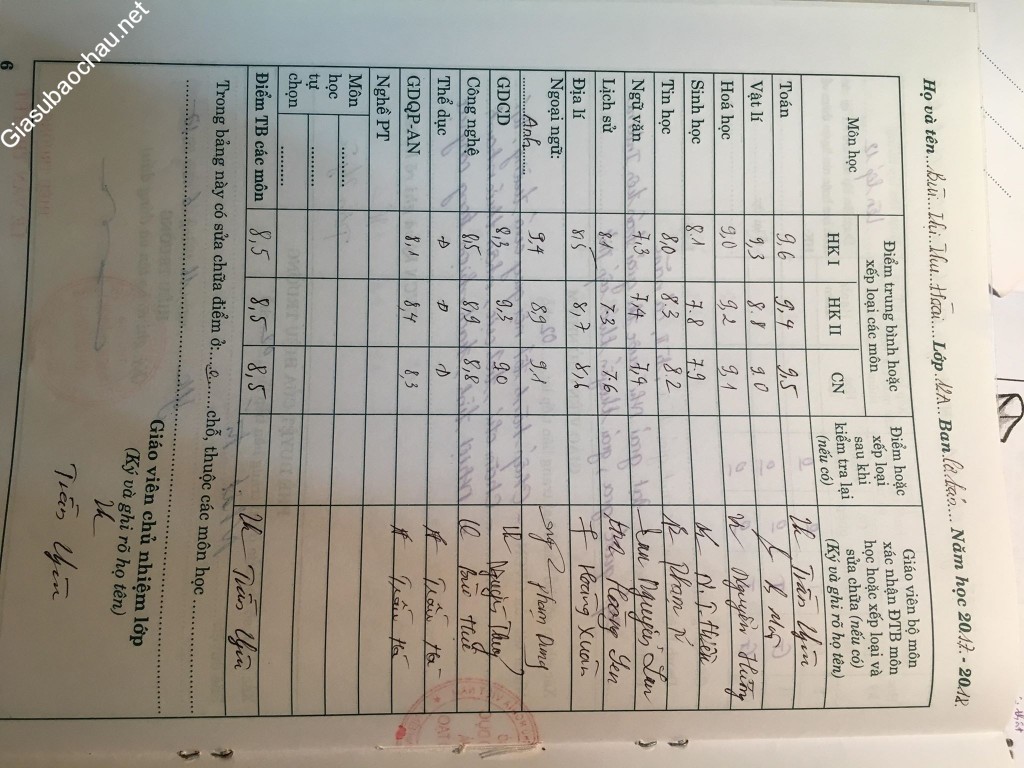 Họ và tên...Bùi...Thị...Thu...Hoài....Lớp..11A...Ban.Cơ bản.... Năm học 2017.-2018.
Môn học | Điểm trung bình hoặc xếp loại các môn | Điểm hoặc xếp loại sau khi kiểm tra lại (nếu có) | Giáo viên bộ môn xác nhận ĐTB môn học hoặc xếp loại và sửa chữa (nếu có) (Ký và ghi rõ họ tên)
HK I | HK II | CN
Toán 9,6 9,4 9,5 Trần Yên
Vật lí 9,3 8.8 9.0
Hoá học 9,0 9,2 9,1 Nguyễn Hường
Sinh học 8.1 7.8 7.9
Tin học 8,0 8.3 8.2 Phạm
Ngữ văn 7,3 Nguyễn Lan
Lịch sử 8.1 7.3 7.6 Hoàng Yến
Địa lí 8,5 8,7 8,6 Hoàng Xuân
Ngoại ngữ: ......Anh........ 9,4 8,9 9,1 Phạm Dung
GDCD 8,3 9,3 9,0 Nguyễn Thuỷ
Công nghệ 8,5 8,9 8,8 Bùi Huế
Thể dục Đ Đ Đ Trần Hà
GDQP-AN 8,1 8,4 8,3 Trần Hà
Nghề PT
Môn học tự chọn
Điểm TB các môn 8,5 8,5 8,5 Trần Yên
Trong bảng này có sửa chữa điểm ở:...........chỗ, thuộc các môn học
Giáo viên chủ nhiệm lớp
(Ký và ghi rõ họ tên)
Trần Yên
6
Giasubaochau.net